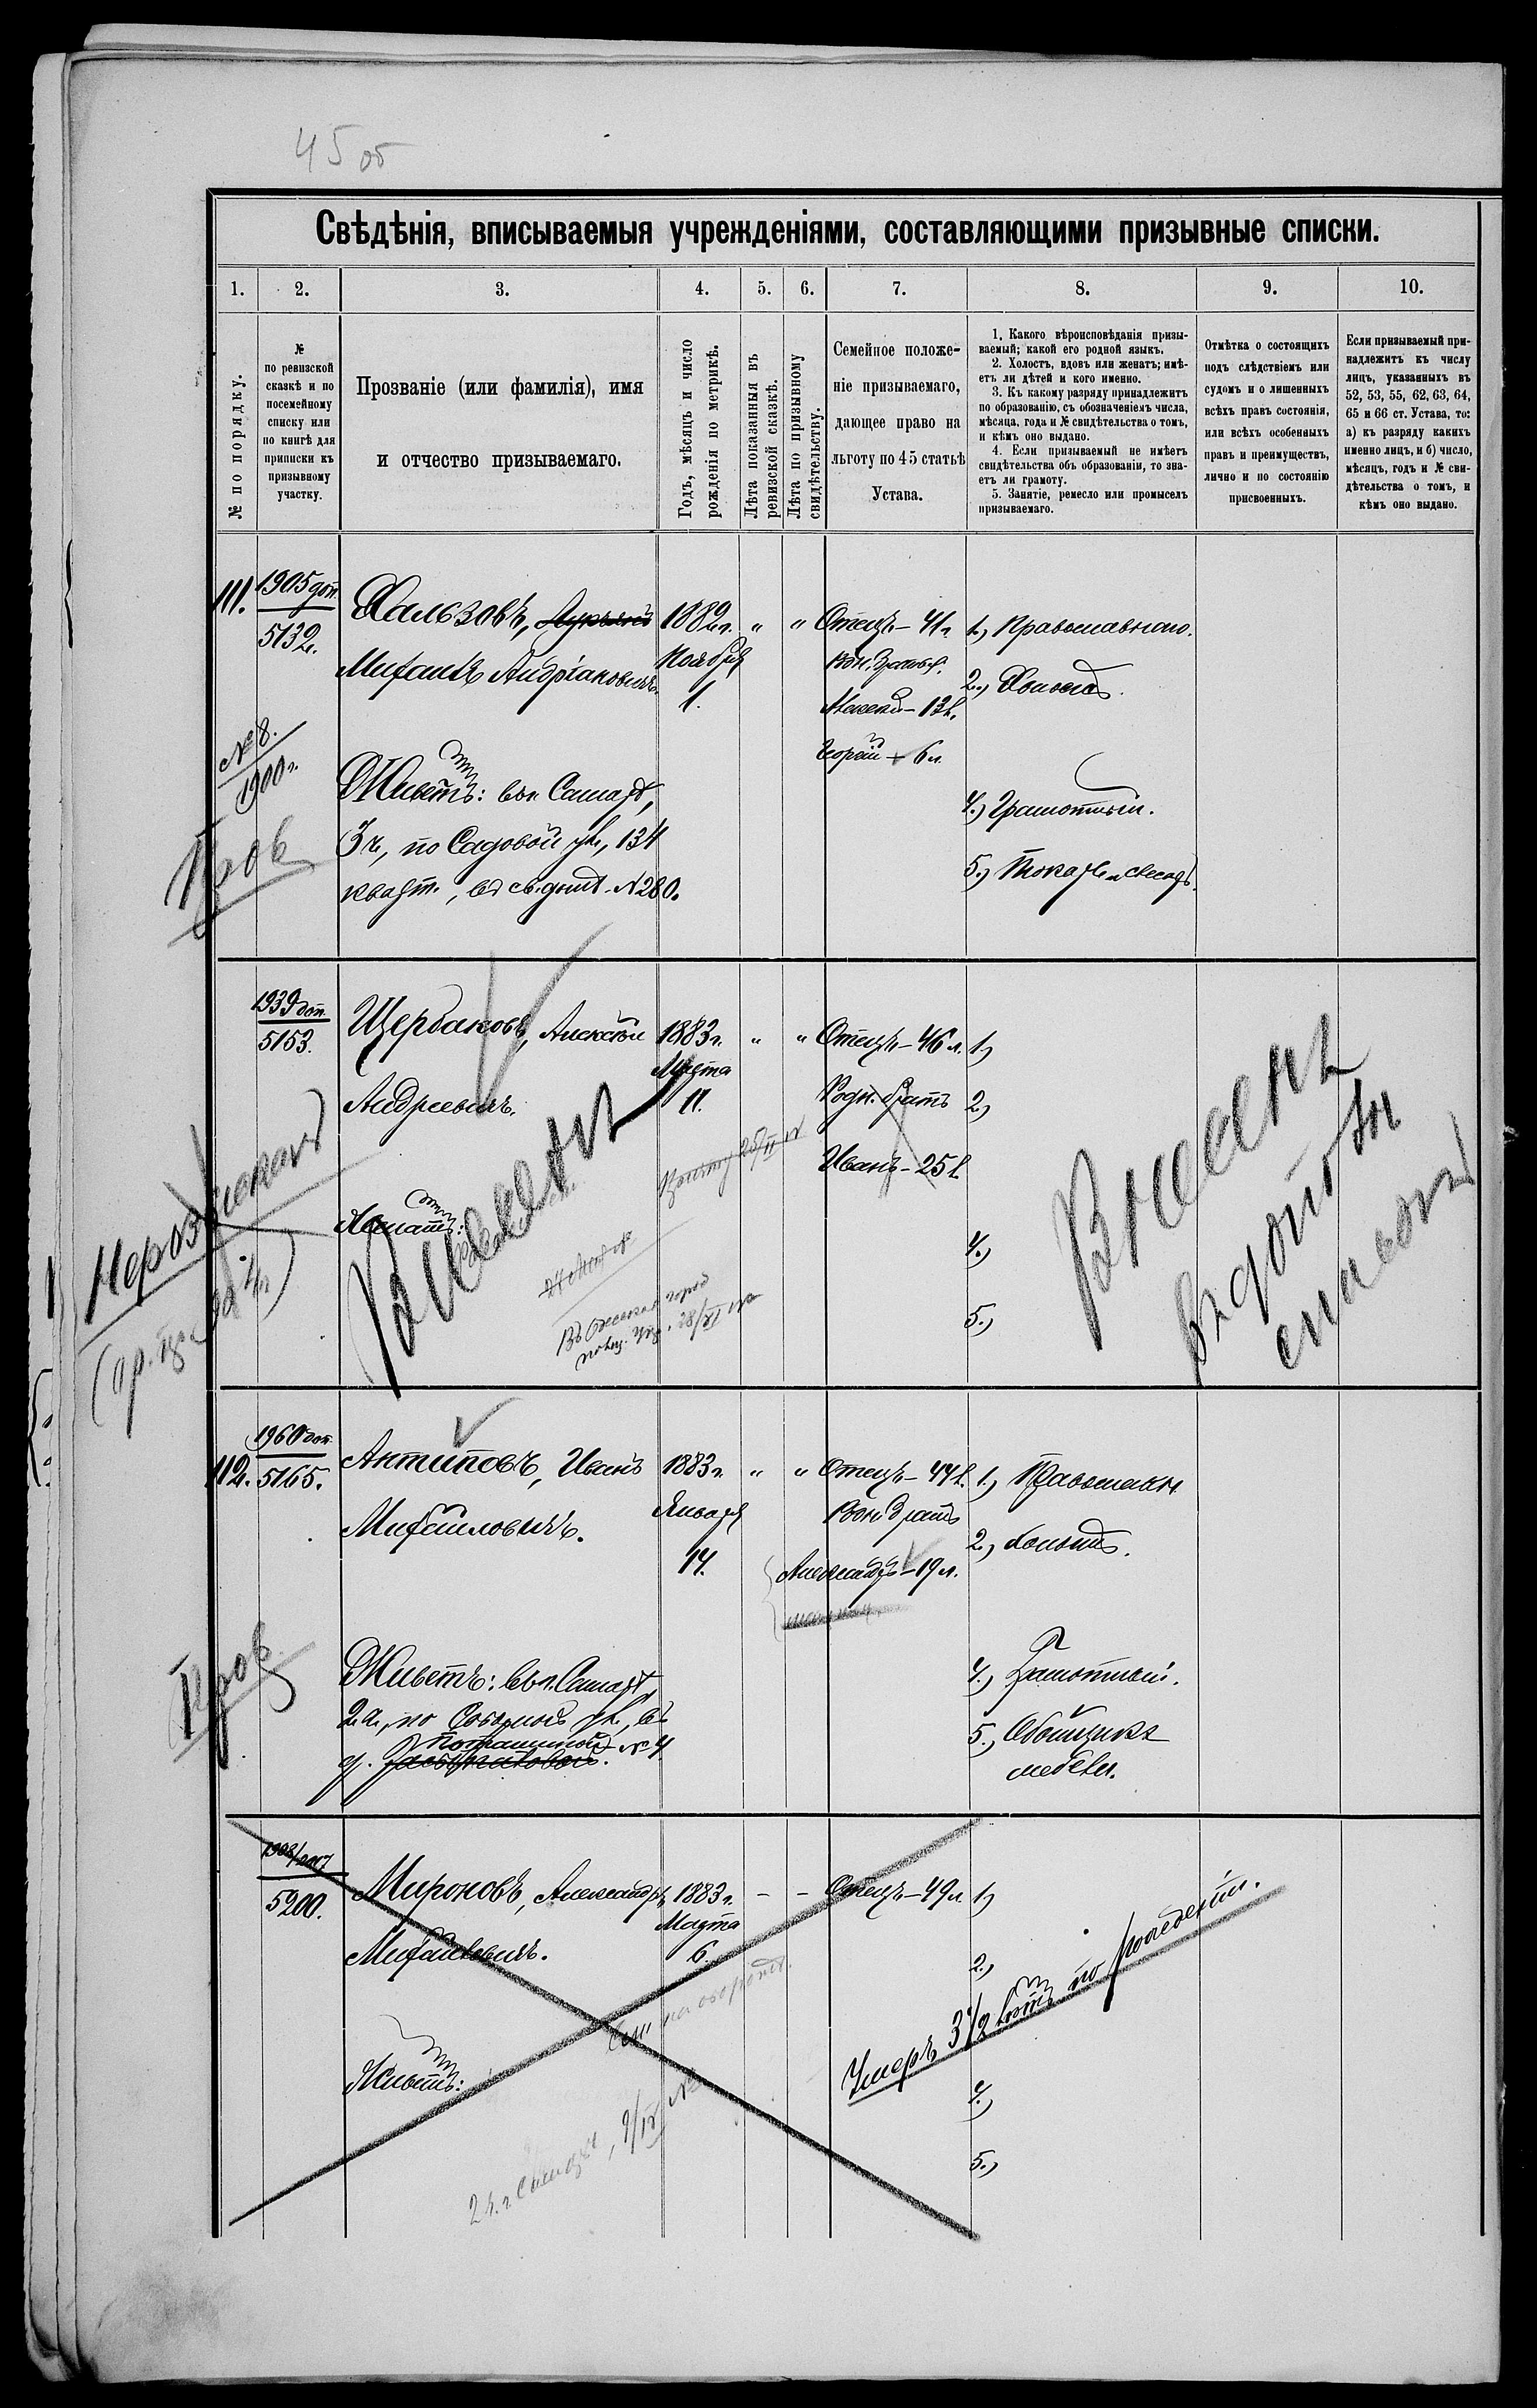 45 об
Свѣдѣнія, вписываемыя учрежденіями, составляющими призывные списки.
1. 2. 3. 4. 5. 6. 7. 8. 9. 10.
№ по порядку.
№
по ревизской
сказкѣ и по
посемейному
списку или
по книгѣ для
приписки къ
призывному
участку.
Прозваніе (или фамилія), имя
и отчество призываемаго.
Годъ, мѣсяцъ и число
рожденія по метрикѣ.
Лѣта показанныя въ
ревизской сказкѣ.
Лѣта по призывному
свидѣтельству.
Семейное положе-
ніе призываемаго,
дающее право на
льготу по 45 статьѣ
Устава.
1. Какого вѣроисповѣданія призы-
ваемый; какой его родной языкъ.
2. Холостъ, вдовъ или женатъ; имѣ-
етъ ли дѣтей и кого именно.
3. Къ какому разряду принадлежитъ
по образованію, съ обозначеніемъ числа,
мѣсяца, года и № свидѣтельства о томъ,
и кѣмъ оно выдано.
4. Если призываемый не имѣетъ
свидѣтельства объ образованіи, то зна-
етъ ли грамоту.
5. Занятіе, ремесло или промыселъ
призываемаго.
Отмѣтка о состоящихъ
подъ слѣдствіемъ или
судомъ и о лишенныхъ
всѣхъ правъ состоянія,
или всѣхъ особенныхъ
правъ и преимуществъ,
лично и по состоянію
присвоенныхъ.
Если призываемый при-
надлежитъ къ числу
лицъ, указанныхъ въ
52, 53, 55, 62, 63, 64,
65 и 66 ст. Устава, то:
а) къ разряду какихъ
именно лицъ, и б) число,
мѣсяцъ, годъ и № сви-
дѣтельства о томъ, и
кѣмъ оно выдано.
111. 1905 доп.
5132.
Хальзовъ,
Михаилъ Андріановичъ.
1882 г.
Ноября
1.
" "
Отецъ - 41 г.
Алексѣй - 13 л.
Георгій + 6 л.
1.) Православнаго.
2.) Холостъ.
4.) Грамотный.
5.) Токарь и слесарь.
№ 8.
1900 г.
Пров
Живетъ: въ г. Самарѣ,
3 ч., по Садовой ул., 134
кварт., въ св. домѣ № 280.
1939 доп.
5153.
Щербаковъ, Алексѣй
Андреевичъ.
1883 г.
Марта
11.
" "
Отецъ - 46 л.
Родн. братъ
Иванъ - 25 л.
1.)
2.)
4.)
5.)
Неразысканъ
Живетъ:
Внесенъ
Внесенъ
въ дополн
списокъ
112. 1960 доп.
5165.
Антиповъ, Иванъ
Михайловичъ.
1883 г.
Января
14.
" "
Отецъ - 44 л.
Родн. братъ
Александръ - 19 л.
1.) Православн.
2.) Холостъ.
4.) Грамотный.
5.) Обойщикъ
мебели.
Пров
Живетъ: въ г. Самарѣ,
2 ч., по Соборной ул., въ
д. № 4
5200.
Мироновъ, Александръ
Михайловичъ.
1883 г.
Марта
6.
- -
Отецъ - 49 л.
1.)
2.)
4.)
5.)
Умеръ 3 1/2 лѣтъ по
См. на оборотѣ.
Живетъ:
2 ч. г. Самары, 9/IV №